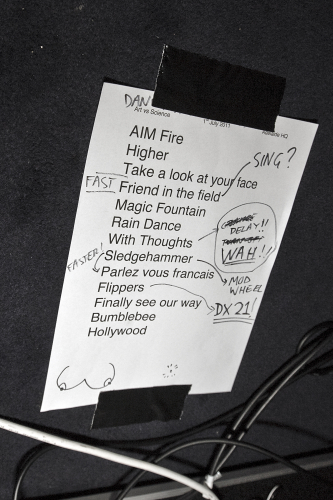 DAN
Art vs Science
1st July 2011
Adelaide HQ
AIM Fire
Higher
SING?
Take a look at your face
FAST Friend in the field
Magic Fountain
Rain Dance
DELAY!!
With Thoughts
WAH!!
FASTER!
Sledgehammer
Parlez vous francais
MOD
WHEEL
Flippers
DX 21!
Finally see our way
Bumblebee
Hollywood